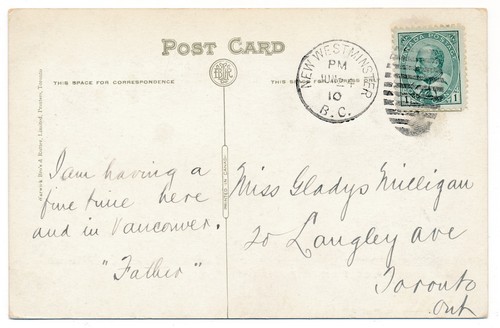 POST CARD
THIS SPACE FOR CORRESPONDENCE
NEW WESTMINSTER
PM
10
B.C.
CANADA POSTAGE
1 1
Warwick Bro's & Rutter, Limited, Printers, Toronto
PRINTED IN CANADA
I am having a
fine time here
and in Vancouver.
"Father"
Miss Gladys Milligan
20 Langley Ave
Toronto
Ont